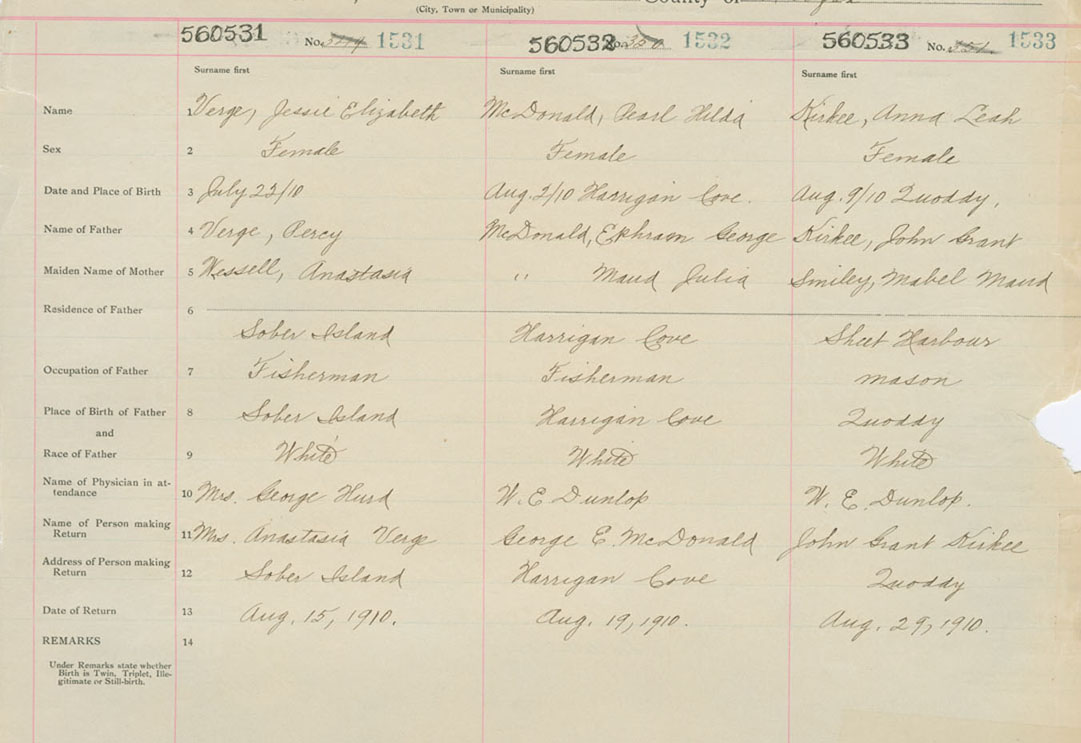 (City, Town or Municipality) County of
560531 No. 1531 560532 No. 350 1532 560533 No. 351 1533
Surname first Surname first Surname first
Name 1 Verge, Jessie Elizabeth McDonald, Pearl Hilda Kirkee, Anna Leah
Sex 2 Female Female Female
Date and Place of Birth 3 July 23/10 Aug. 2/10 Harrigan Cove. Aug. 9/10 Quoddy,
Name of Father 4 Verge, Percy McDonald, Ephraim George Kirkee, John Grant
Maiden Name of Mother 5 Wessell, Anastasia " Maud Julia Smiley, Mabel Maud
Residence of Father 6
Sober Island Harrigan Cove Sheet Harbour
Occupation of Father 7 Fisherman Fisherman mason
Place of Birth of Father 8 Sober Island Harrigan Cove Quoddy
and
Race of Father 9 White White White
Name of Physician in at-
tendance 10 Mrs. George Hurd W. E Dunlop W. E. Dunlop.
Name of Person making
Return 11 Mrs. Anastasia Verge George E. McDonald John Grant Kirkee
Address of Person making
Return 12 Sober Island Harrigan Cove Quoddy
Date of Return 13 Aug. 15, 1910. Aug. 19, 1910. Aug. 29, 1910.
REMARKS 14
Under Remarks state whether
Birth is Twin, Triplet, Ille-
gitimate or Still-birth.